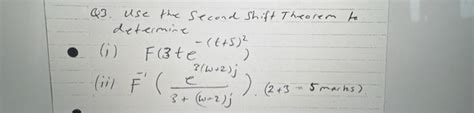 Q3. Use the Second Shift Theorem to
determine
(i) F(3te^{-(t+5)^2})
(ii) F^{-1}(e^{2(w+2)j}/(3+(w-2)j)). (2+3 = 5 marks)